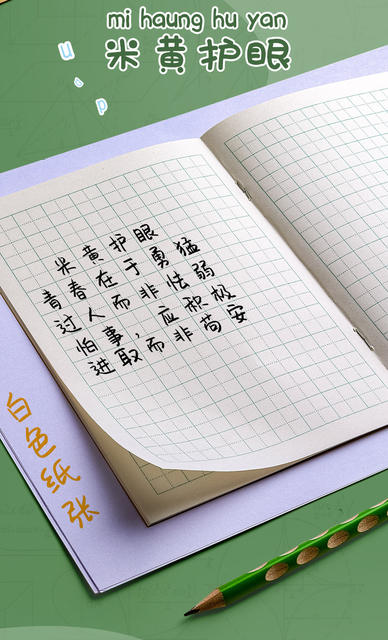 mi haung hu yan
米黄护眼
up
米黄护眼
青春在于勇猛
过人而非怯弱
怕事，应积极
进取而非苟安
白色纸张